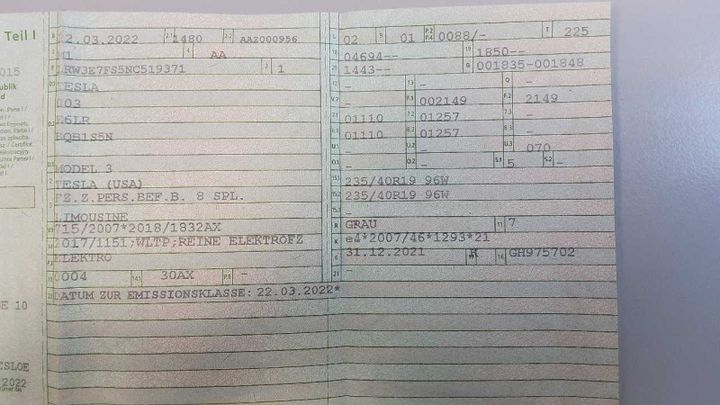 Teil I
22.03.2022 1480 AAZ000956
M1 AA
LRW3E7FS5NC519371 1
TESLA
003
E6LR
BQB1S5N
MODEL 3
TESLA (USA)
FZ.Z.PERS.BEF.B. 8 SPL.
LIMOUSINE
715/2007*2018/1832AX
2017/1151;WLTP;REINE ELEKTROFZ
ELEKTRO
0004 30AX -
DATUM ZUR EMISSIONSKLASSE: 22.03.2022*
02 01 0088/- 225
04694-- 1850--
1443-- 001835-001848
- - -
- 002149 2149
01110 01257 -
01110 01257 -
- - 070
- - 5 -
235/40R19 96W
235/40R19 96W
-
GRAU 7
e4*2007/46*1293*21
31.12.2021 K GH975702
-